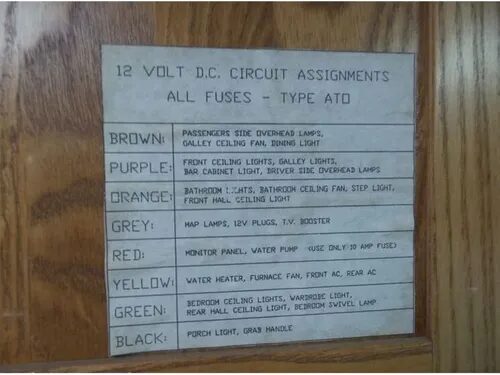 12 VOLT D.C. CIRCUIT ASSIGNMENTS
ALL FUSES - TYPE ATO
BROWN: PASSENGERS SIDE OVERHEAD LAMPS,
GALLEY CEILING FAN, DINING LIGHT
PURPLE: FRONT CEILING LIGHTS, GALLEY LIGHTS,
BAR CABINET LIGHT, DRIVER SIDE OVERHEAD LAMPS
ORANGE: BATHROOM LIGHTS, BATHROOM CEILING FAN, STEP LIGHT,
FRONT HALL CEILING LIGHT
GREY: MAP LAMPS, 12V PLUGS, T.V. BOOSTER
RED: MONITOR PANEL, WATER PUMP (USE ONLY 10 AMP FUSE)
YELLOW: WATER HEATER, FURNACE FAN, FRONT AC, REAR AC
GREEN: BEDROOM CEILING LIGHTS, WARDROBE LIGHT,
REAR HALL CEILING LIGHT, BEDROOM SWIVEL LAMP
BLACK: PORCH LIGHT, GRAB HANDLE